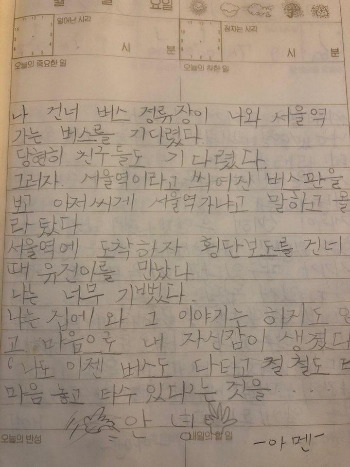 월 일 요일
일어난 시각
시 분
잠자는 시각
시 분
오늘의 중요한 일
오늘의 착한 일
나 건너 버스 정류장이 나와 서울역
가는 버스를 기다렸다
당현히 친구들도 기다렸다.
그러자 서울역이라고 씌여진 버스판을
보고 아저씨께 서울역가냐고 말하고 올
라 탔다
서울역에 도착하자 횡단보도를 건너
때 유진이를 만났다
나는 너무 기뻤다.
나는 집에 와 그 이야기는 하지도
고 마음으로 내 자신감이 생겼다
나도 이젠 버스도 다타고 철도
마음 놓고 타수 있다는 것을 ...
안녕
오늘의 반성
내일의 할 일
-아멘-